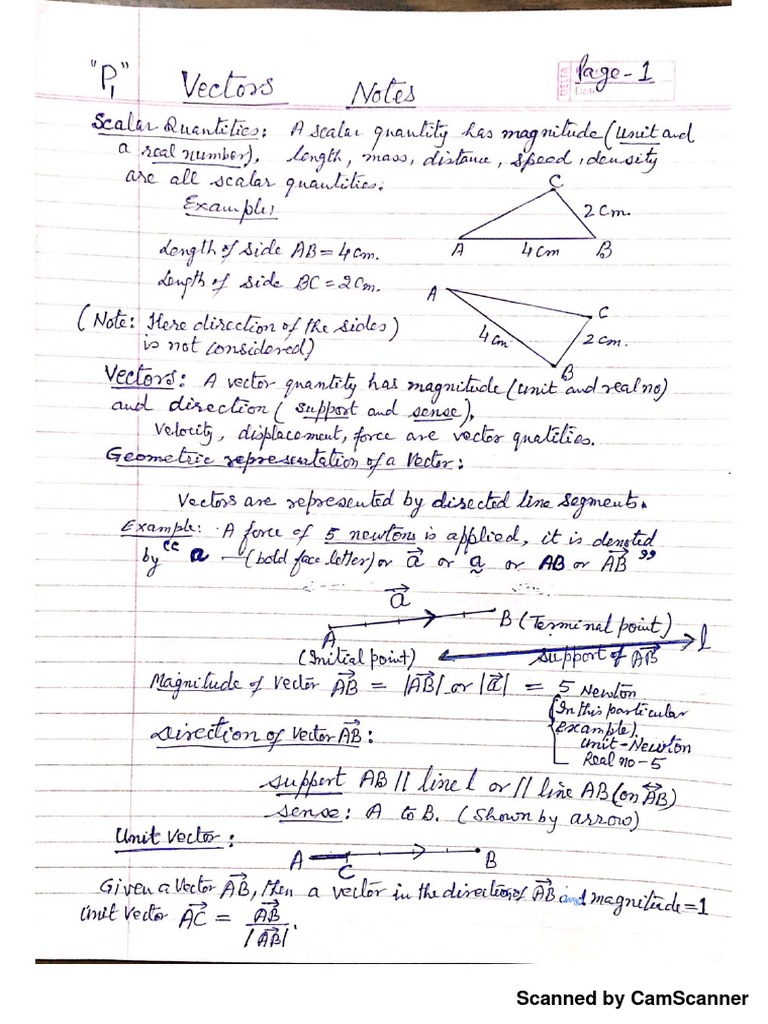 "P1" Vectors Notes Page-1
Scalar Quantities: A scalar quantity has magnitude (unit and
a real number), length, mass, distance, speed, density
are all scalar quantities.
Example:
C
2 cm.
A 4cm B
Length of side AB = 4cm.
Length of side BC = 2cm.
A
C
4cm 2cm.
B
(Note: Here direction of the sides)
is not considered)
Vectors: A vector quantity has magnitude (unit and real no)
and direction (support and sense),
Velocity, displacement, force are vector quatities.
Geometric representation of a Vector:
Vectors are represented by directed line segments.
Example: A force of 5 newtons is applied, it is denoted
by "a —(bold face letter) or a⃗ or a̰ or AB or AB⃗"
a⃗
A B (Terminal point) l
(Initial point) support of AB⃗
Magnitude of vector AB⃗ = |AB⃗| or |a⃗| = 5 Newton
(In this particular
example).
Unit - Newton
Real no - 5
Direction of vector AB⃗:
support AB || line l or || line AB (on A͍B↔)
sense: A to B. (Shown by arrow)
Unit vector:
A C B
Given a vector AB⃗, then a vector in the direction of AB⃗ and magnitude = 1
Unit vector AC⃗ = AB⃗ / |AB⃗|.
Scanned by CamScanner